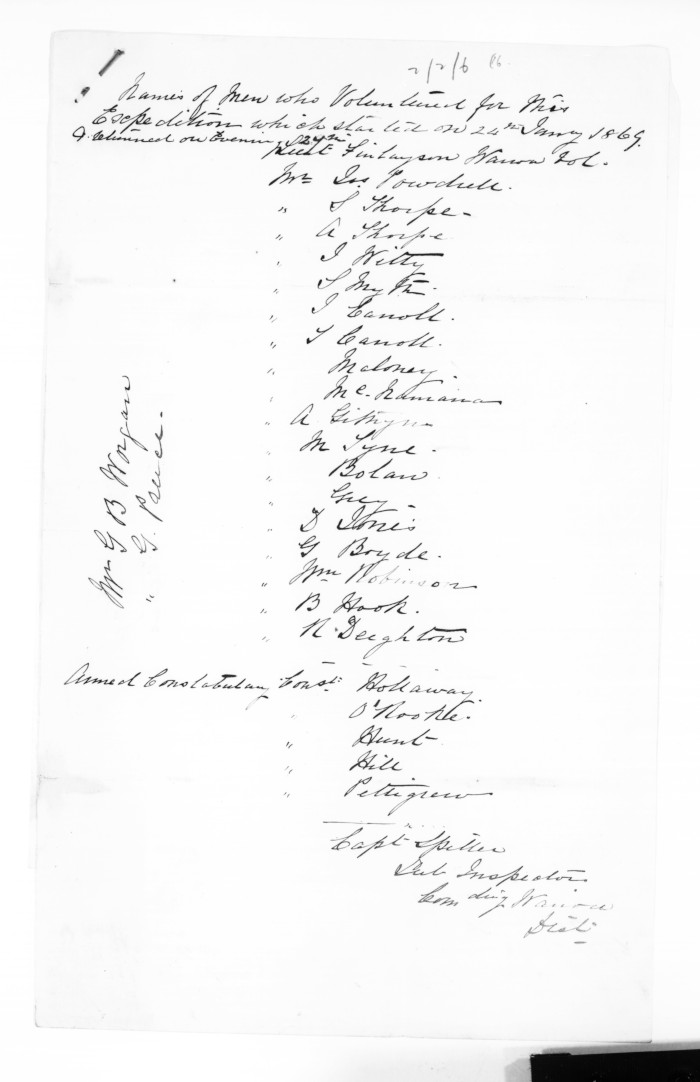 2/2/6
Names of Men who Volunteered for this
Expedition which started on 24th Janry 1869
& returned on Evening 28th
Lieut Finlayson Wairoa Vol.
Mr Jas Powdrell.
" S Thorpe -
" A Thorpe
" J Witty
" Smyth.
" J Carroll.
" T Carroll.
" Maloney.
" McNamara
" A
" M Tyne.
" Bolan
" Grey
" D Jones
" G Boyde.
" Wm Robinson
" B Hook.
" R. Deighton
Mr G B Worgan
" G.
Armed Constabulary Const: Hollaway
" O'Rooke.
" Hunt
" Hill
" Pettigrew
Capt Spiller
Sub Inspector
Comding Wairoa
Dist